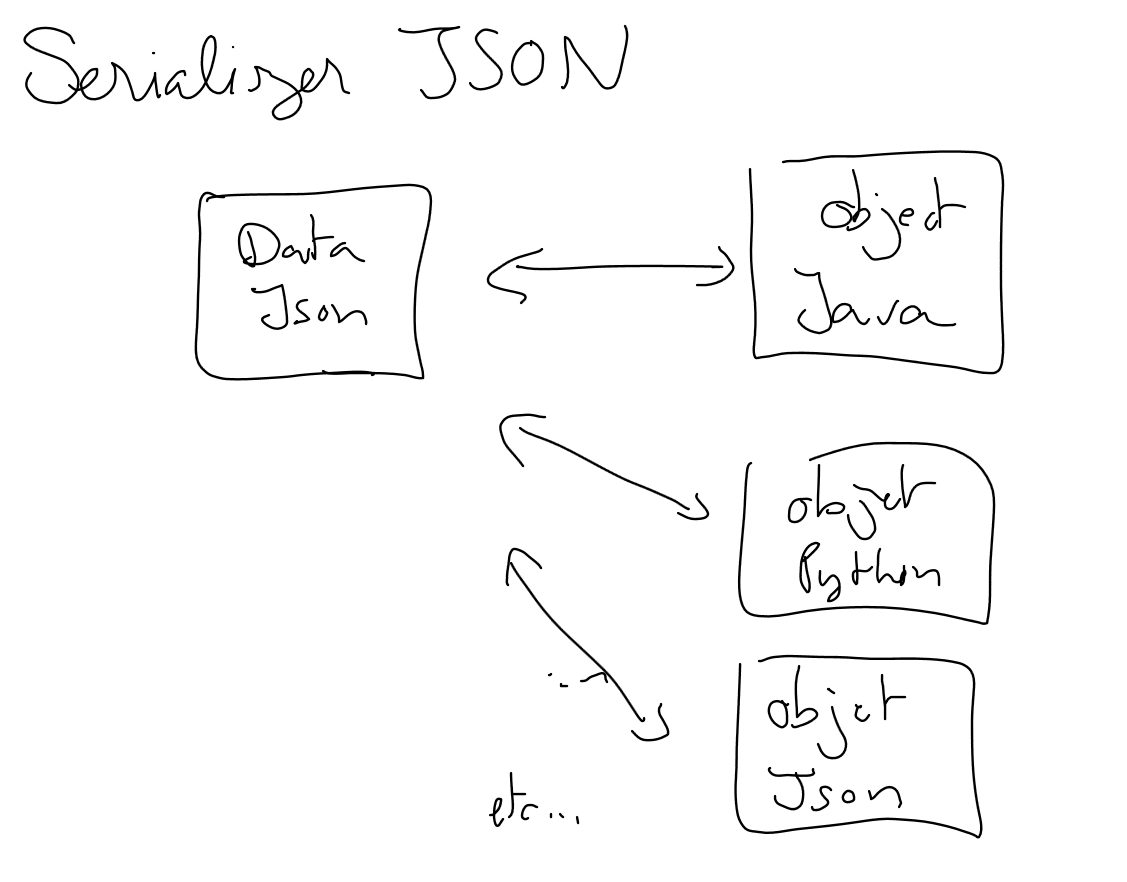 Serializer JSON
Data
Json
object
Java
objet
Python
objet
Json
etc...